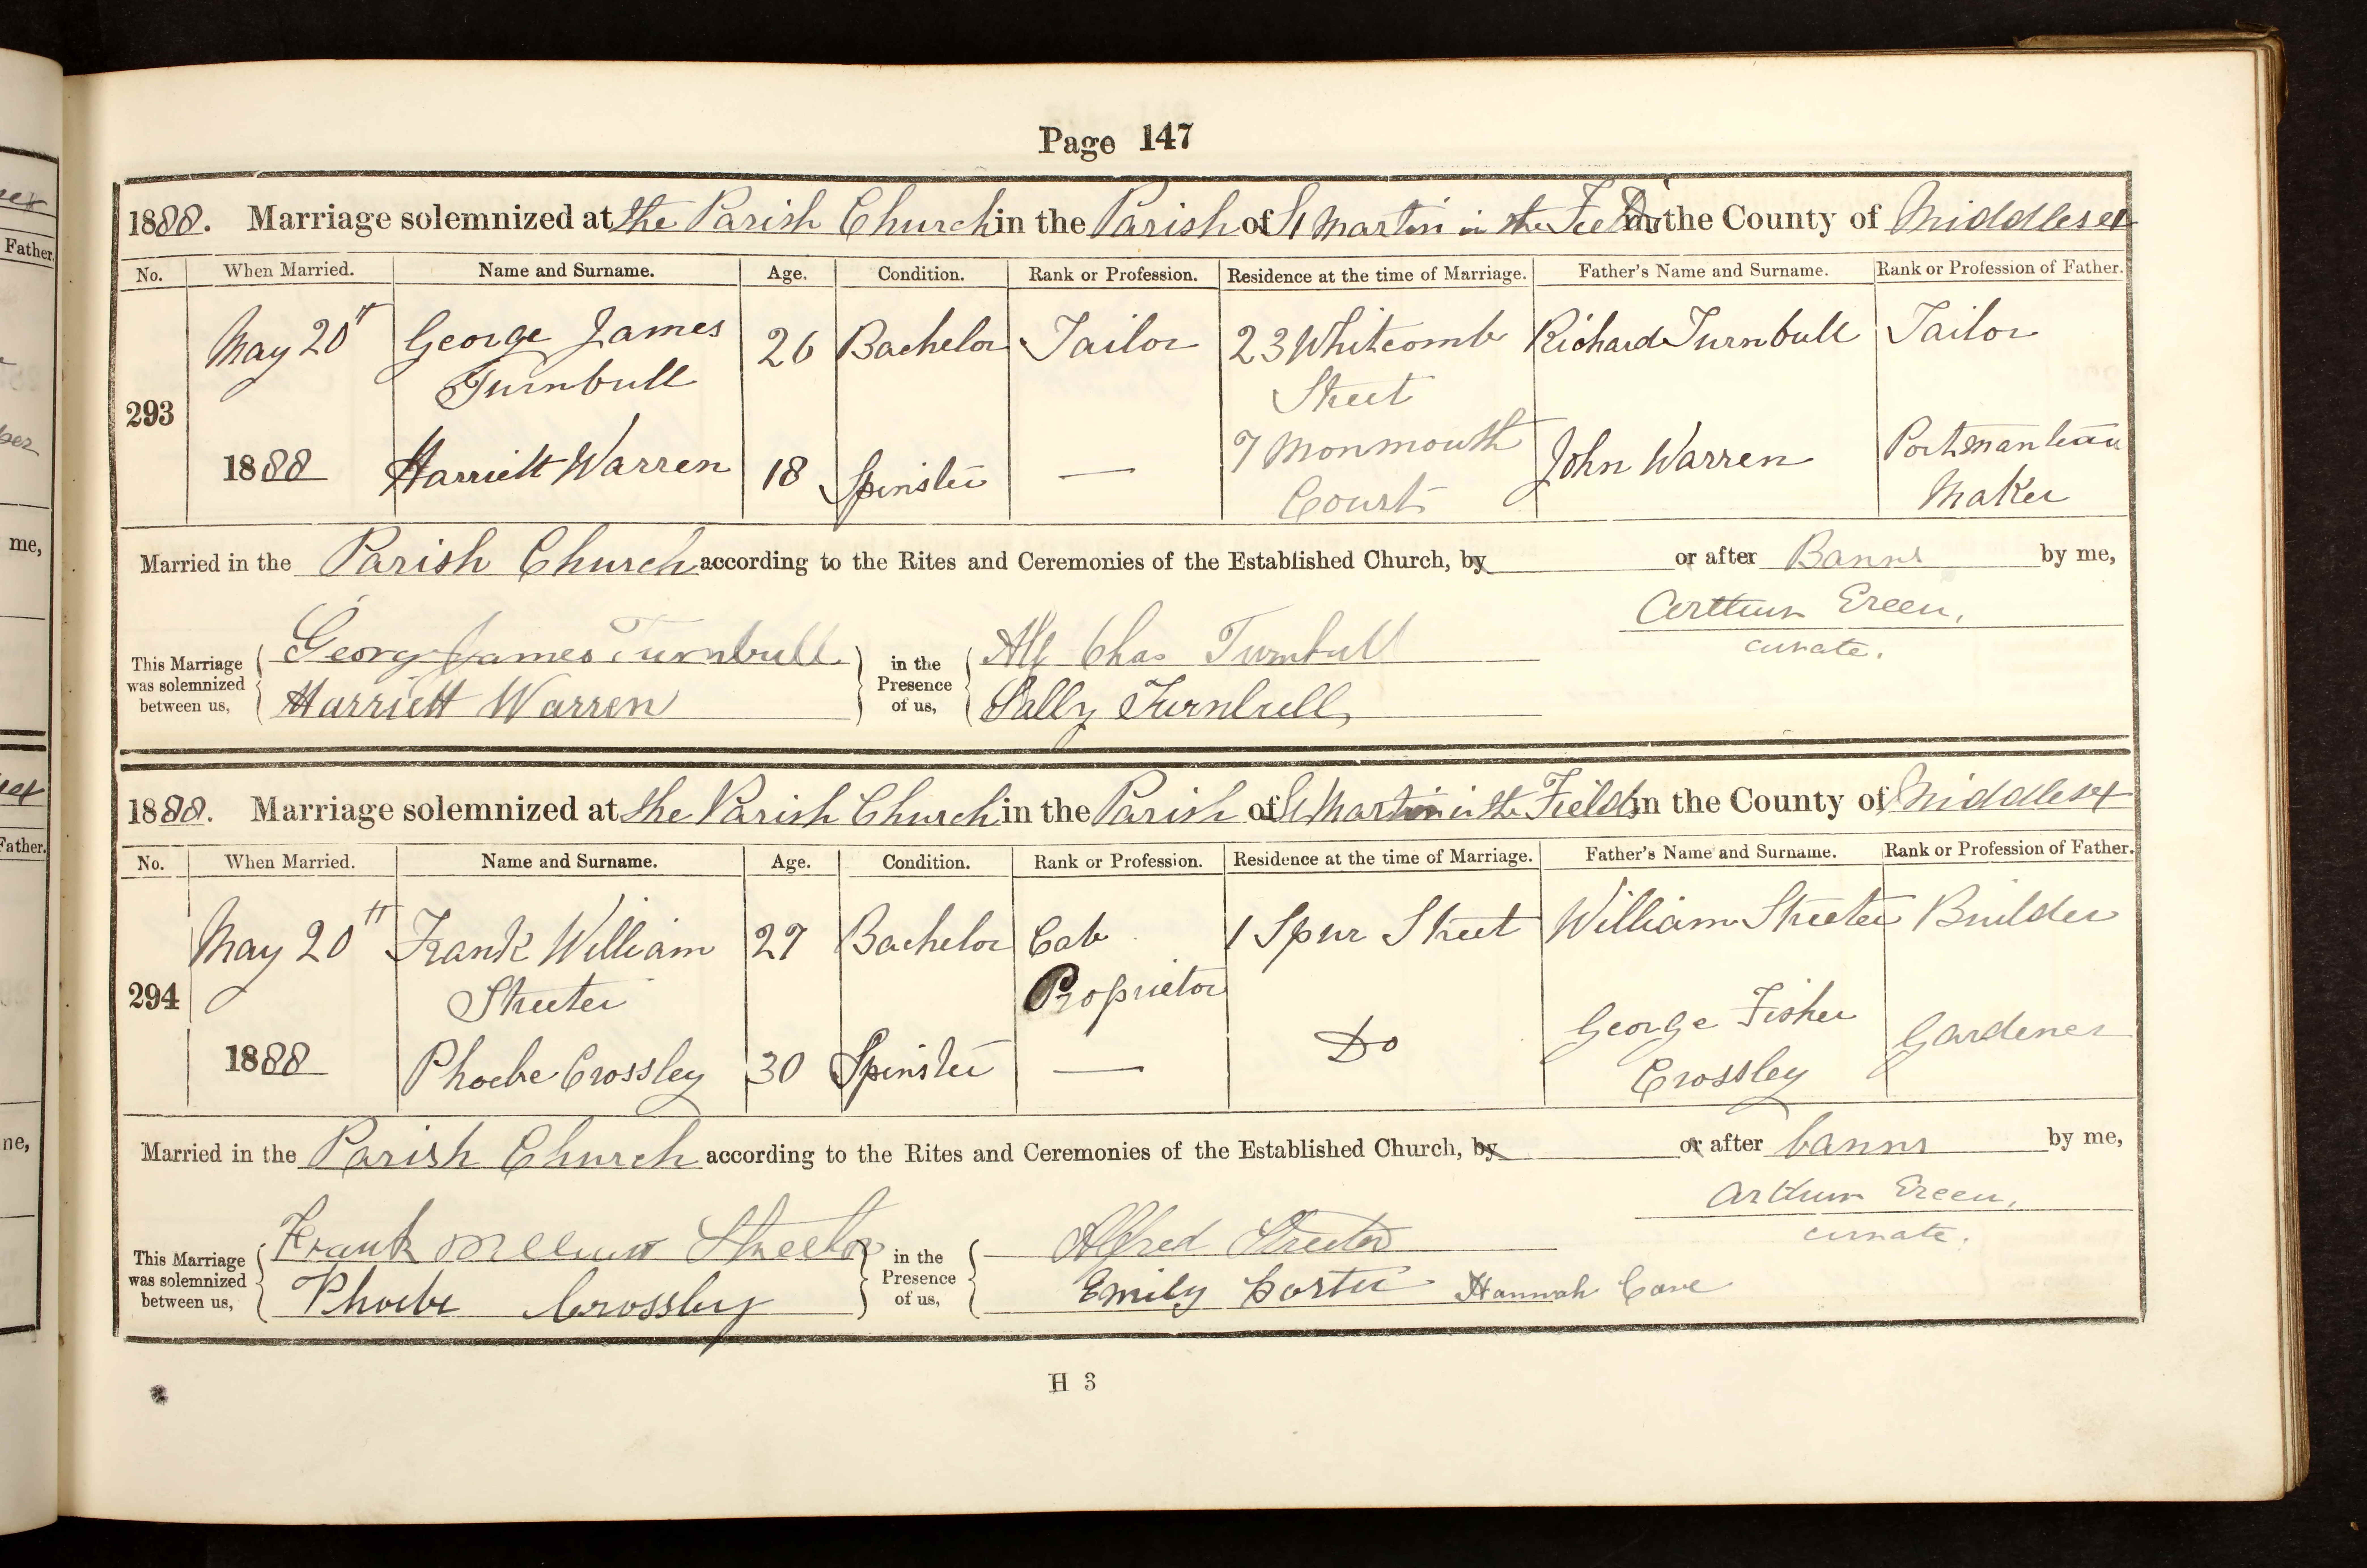 Page 147
1888. Marriage solemnized at the Parish Church in the Parish of St Martin in the Fields in the County of Middlesex
No. When Married. Name and Surname. Age. Condition. Rank or Profession. Residence at the time of Marriage. Father's Name and Surname. Rank or Profession of Father.
293 May 20th 1888 George James Turnbull 26 Bachelor Tailor 23 Whitcomb Street Richard Turnbull Tailor
Harriett Warren 18 Spinster — 7 Monmouth Court John Warren Portmanteau Maker
Married in the Parish Church according to the Rites and Ceremonies of the Established Church, by or after Banns by me,
Arthur Green,
curate.
This Marriage was solemnized between us, George James Turnbull in the Presence of us, Alf Chas Turnbull
Harriett Warren Sally Turnbull
1888. Marriage solemnized at the Parish Church in the Parish of St Martin in the Fields in the County of Middlesex
No. When Married. Name and Surname. Age. Condition. Rank or Profession. Residence at the time of Marriage. Father's Name and Surname. Rank or Profession of Father.
294 May 20th 1888 Frank William Streeter 27 Bachelor Cab Proprietor 1 Spur Street William Streeter Builder
Phoebe Crossley 30 Spinster — Do George Fisher Crossley Gardener
Married in the Parish Church according to the Rites and Ceremonies of the Established Church, by or after banns by me,
Arthur Green,
curate.
This Marriage was solemnized between us, Frank William Streeter in the Presence of us, Alfred Streeter
Phoebe Crossley Emily Hannah Cave
H 3
Father.
me,
Father.